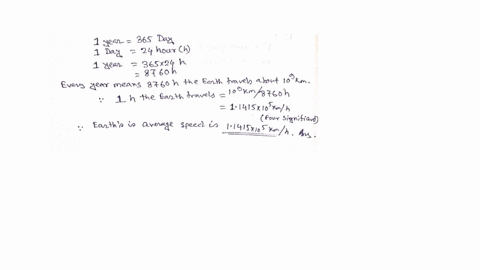 1 year = 365 Day
1 Day = 24 hour (h)
1 year = 365x24 h
= 8760 h
Every year means 8760 h the Earth travels about 10⁹ Km.
∵ 1 h the Earth travels = 10⁹ Km/8760 h
= 1.1415x10⁵ Km/h
(four significant)
∵ Earth's is average speed is 1.1415x10⁵ Km/h. Ans.